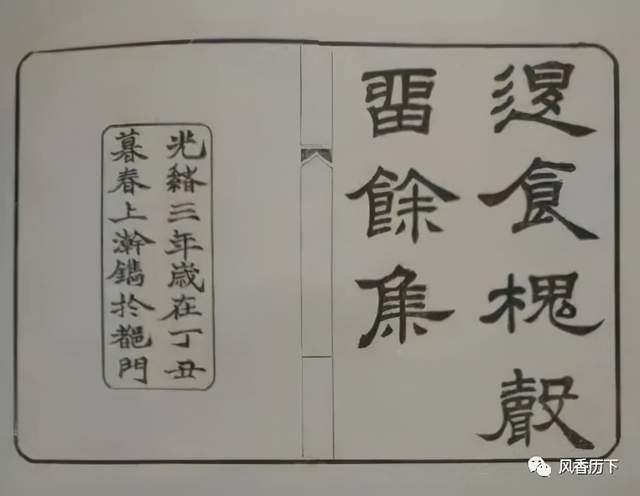 退食槐聲
畱餘集
光緒三年歲在丁丑
暮春上澣鐫於都門
风香历下